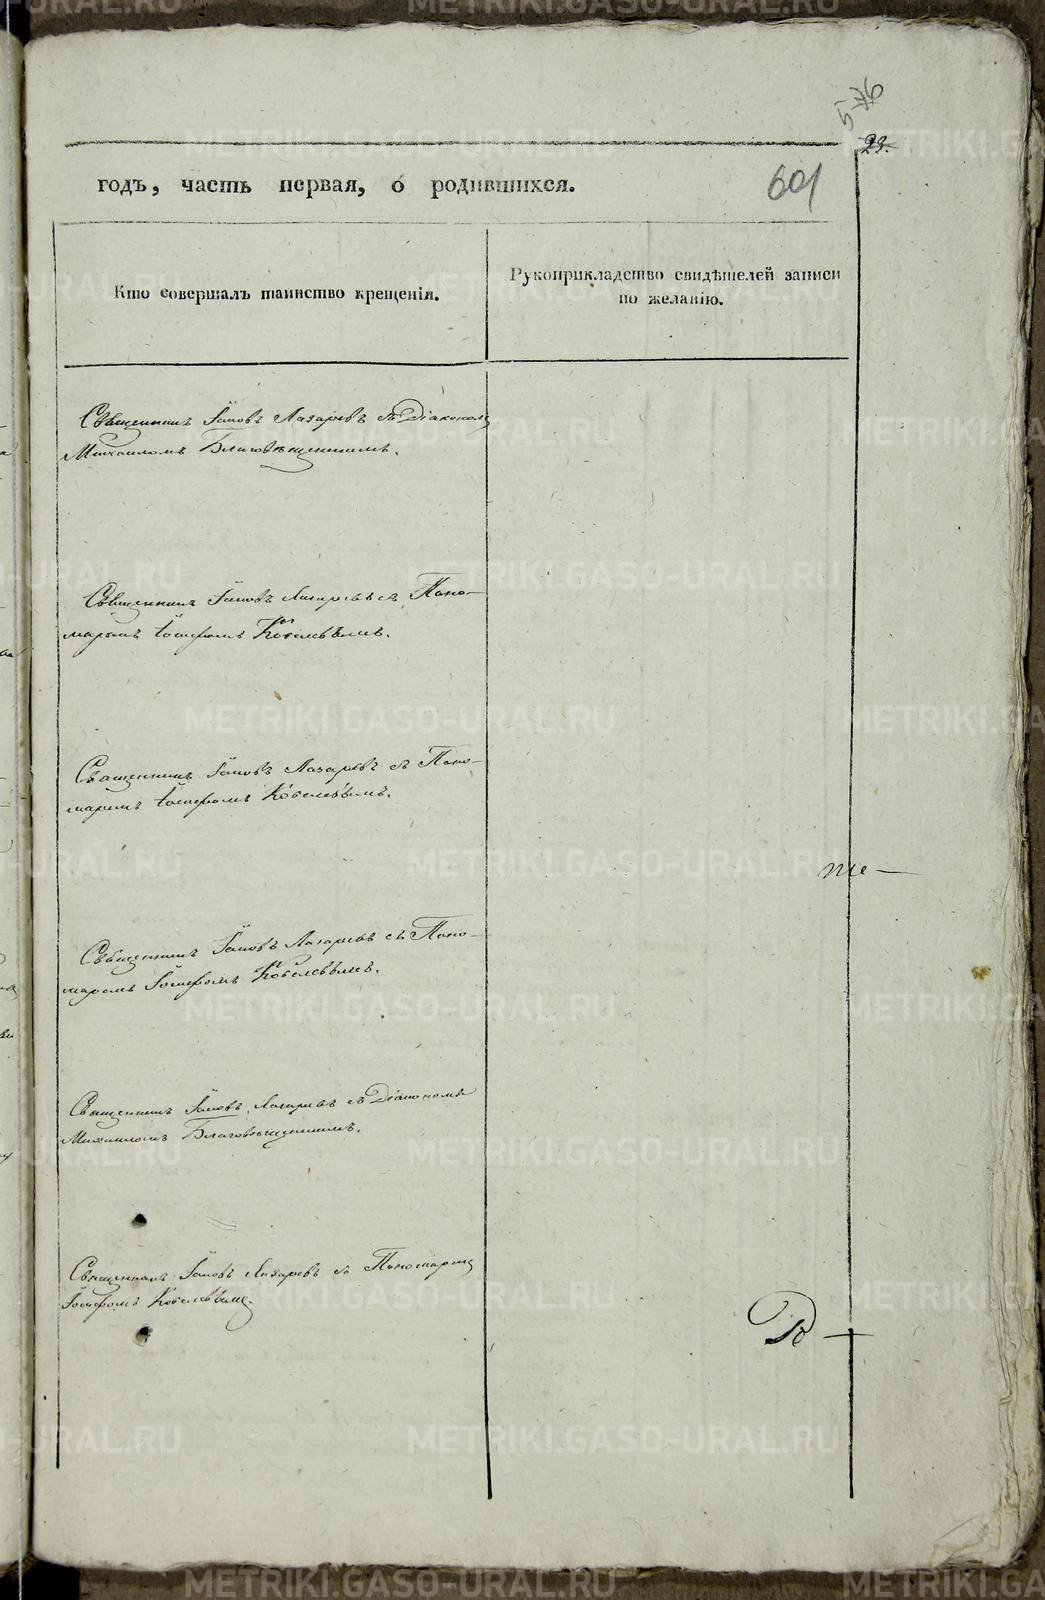 576
23.
годъ, часть первая, о родившихся.
601
Кто совершалъ таинство крещенія.
Рукоприкладство свидѣтелей записи
по желанію.
Священникъ Іаковъ Лазаревъ съ Діакономъ
Михаиломъ Благовѣщенскимъ.
Священникъ Іаковъ Лазаревъ съ Поно-
маремъ Іосифомъ Кобелевымъ.
Священникъ Іаковъ Лазаревъ съ Поно-
маремъ Іосифомъ Кобелевымъ.
те —
Священникъ Іаковъ Лазаревъ съ Поно-
маремъ Іосифомъ Кобелевымъ.
Священникъ Іаковъ Лазаревъ съ Діакономъ
Михаиломъ Благовѣщенскимъ.
Священникъ Іаковъ Лазаревъ съ Пономаремъ
Іосифомъ Кобелевымъ.
METRIKI.GASO-URAL.RU